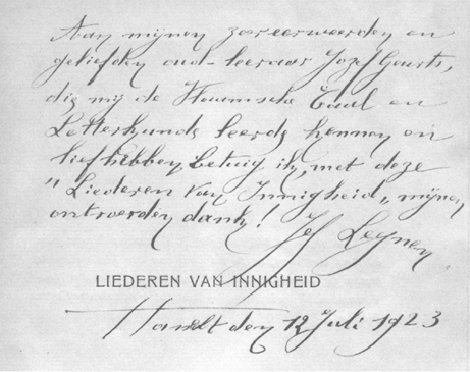 Aan mijnen zeereerweerden en
geliefden oud-leeraar Jozef Geurts,
die mij de Vlaamsche Taal en
Letterkunde leerde kennen en
liefhebben, betuig ik, met deze
"Liederen van Innigheid", mijnen
ontroerden dank!
Jef Leynen
LIEDEREN VAN INNIGHEID
Hasselt den 12 Juli 1923